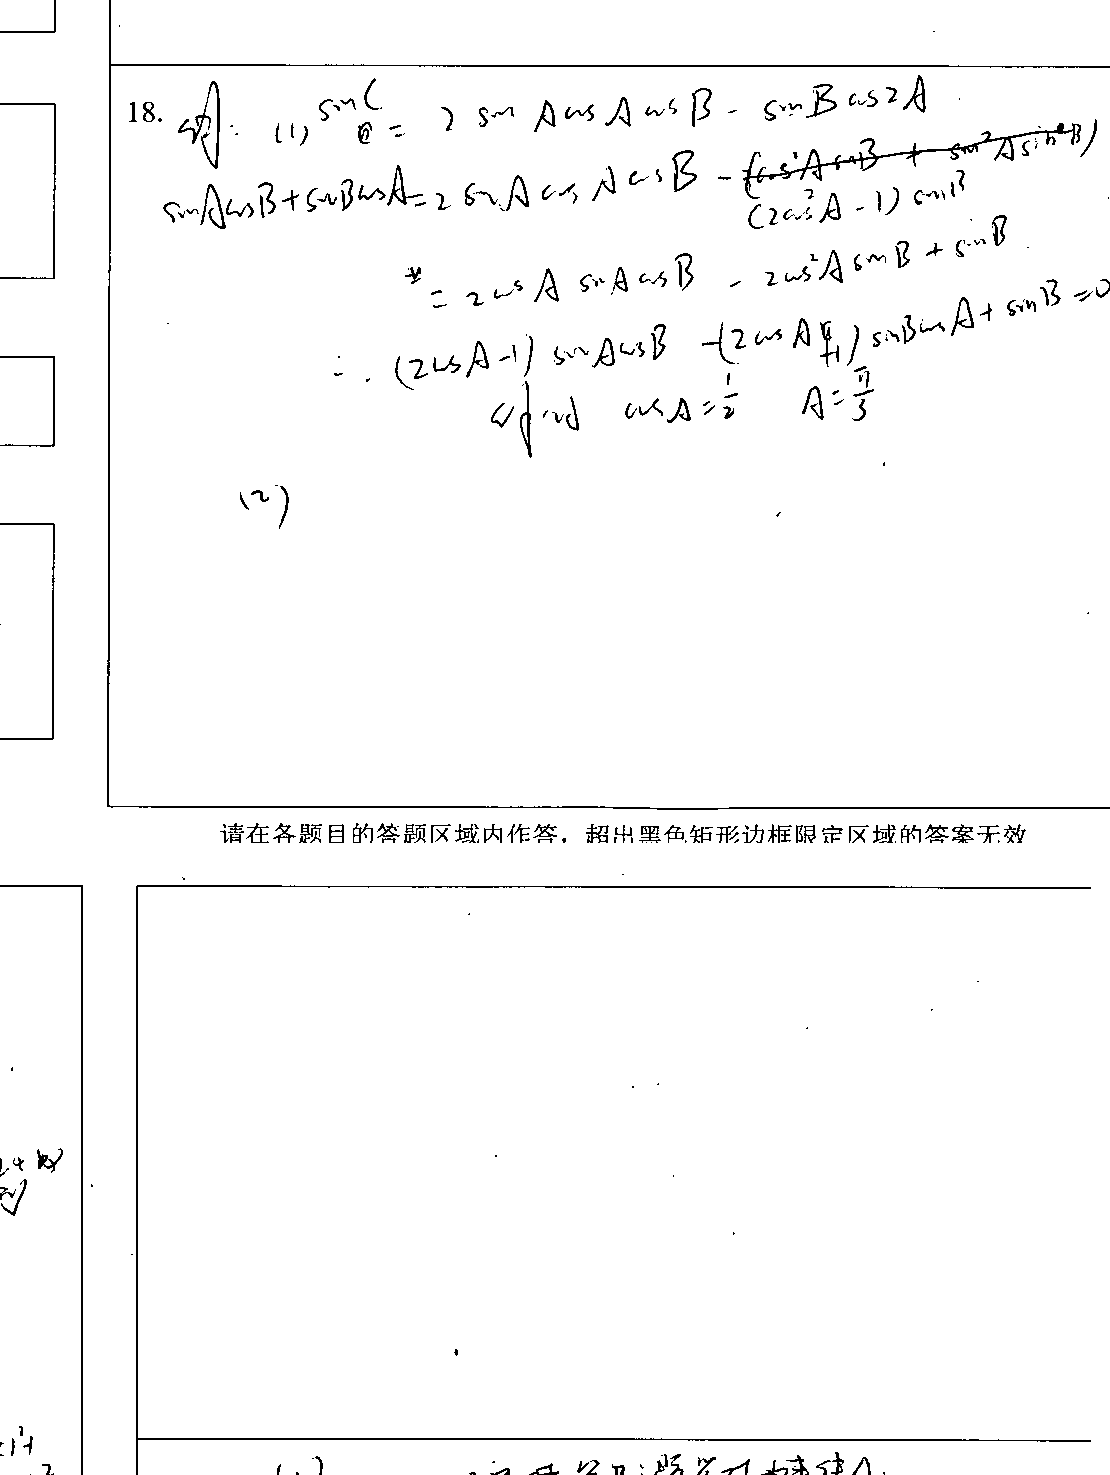 18. 解: (1) sinC = 2 sinAcosAcosB - sinBcos2A
sinAcosB+sinBcosA=2sinAcosAcosB-
(2cos²A-1) sinB
= 2cosA sinAcosB - 2cos²AsinB + sinB.
∴ (2cosA-1) sinAcosB -(2cosA+1) sinBcosA + sinB=0
cosA=1/2 A=π/3
(2)
请在各题目的答题区域内作答，超出黑色矩形边框限定区域的答案无效